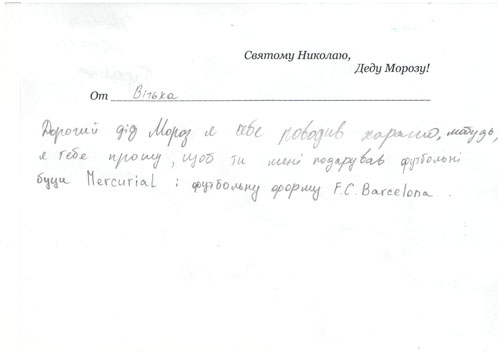 Святому Николаю,
Деду Морозу!
От Вітька
Дорогий дід Мороз я себе поводив харашо, мабудь,
я тебе прошу, щоб ти мені подарував футбольні
буци Mercurial і футбольну форму F.C. Barcelona.